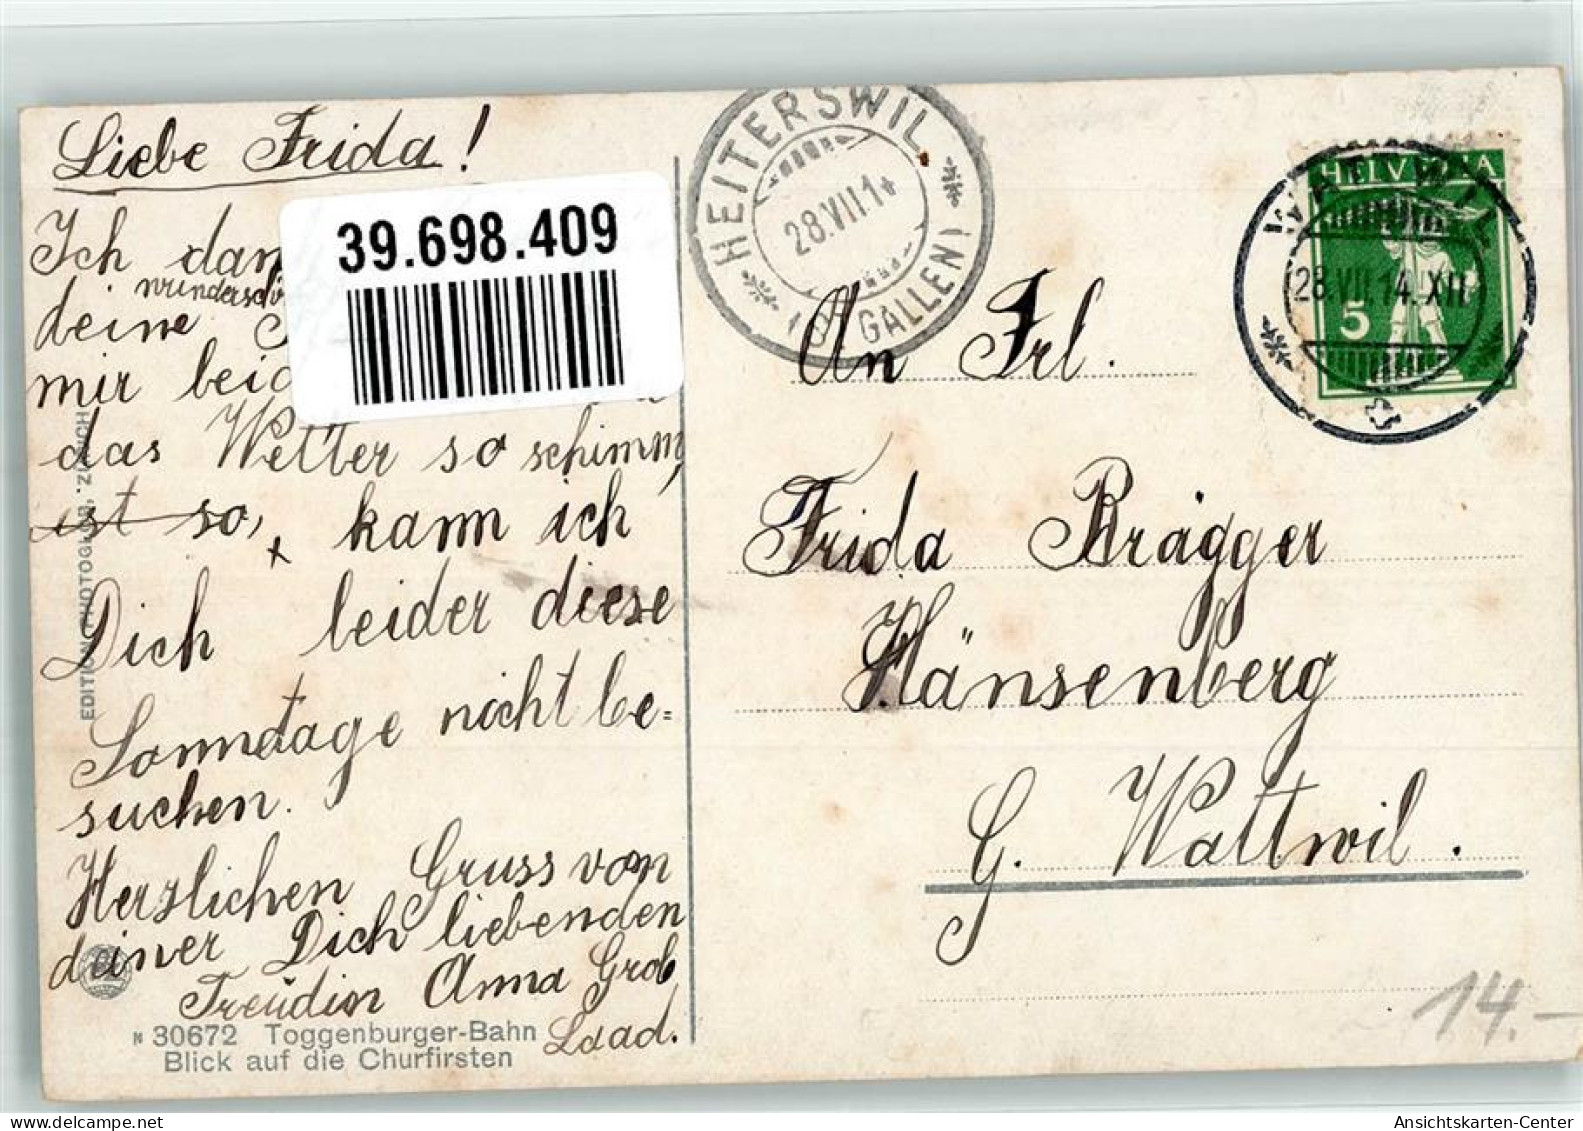 Liebe Frida!
Ich dan
wunderschö
deine
mir beid
das Wetter so schimm,
ist so, x kann ich
Dich leider diese
Sonndtage nicht be=
suchen.
Herzlichen Gruss von
deiner Dich liebenden
Freudin Anna Grob
Laad.
39.698.409
EDITION PHOTOGLOB, ZÜRICH
N 30672 Toggenburger-Bahn
Blick auf die Churfirsten
HEITERSWIL
28.VII.14
(ST. GALLEN)
HELVETIA
5
WATTWIL
28.VII.14.XII
An Frl.
Frida Brägger
Hänsenberg
G. Wattwil.
14.-
Ansichtskarten-Center